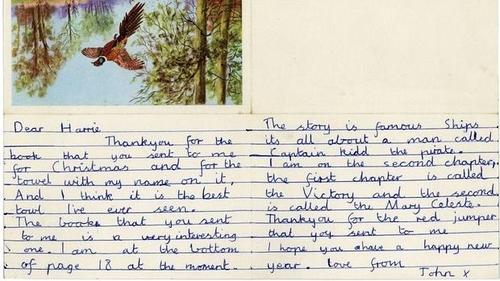 Dear Harrie
Thankyou for the
book that you sent to me
for Christmas and for the
towel with my name on it,
And I think it is the best
towl I've ever seen.
The booke that you sent
to me is a very interesting
one. I am at the bottom
of page 18 at the moment.
The story is famous Ships
its all about a man called
Captain Kidd the pirate.
I am on the second chapter,
the first chapter is called
the Victory and the second
is called the Mary Celeste.
Thankyou for the red jumper
that you sent to me
I hope you ahave a happy new
year. love from
John x